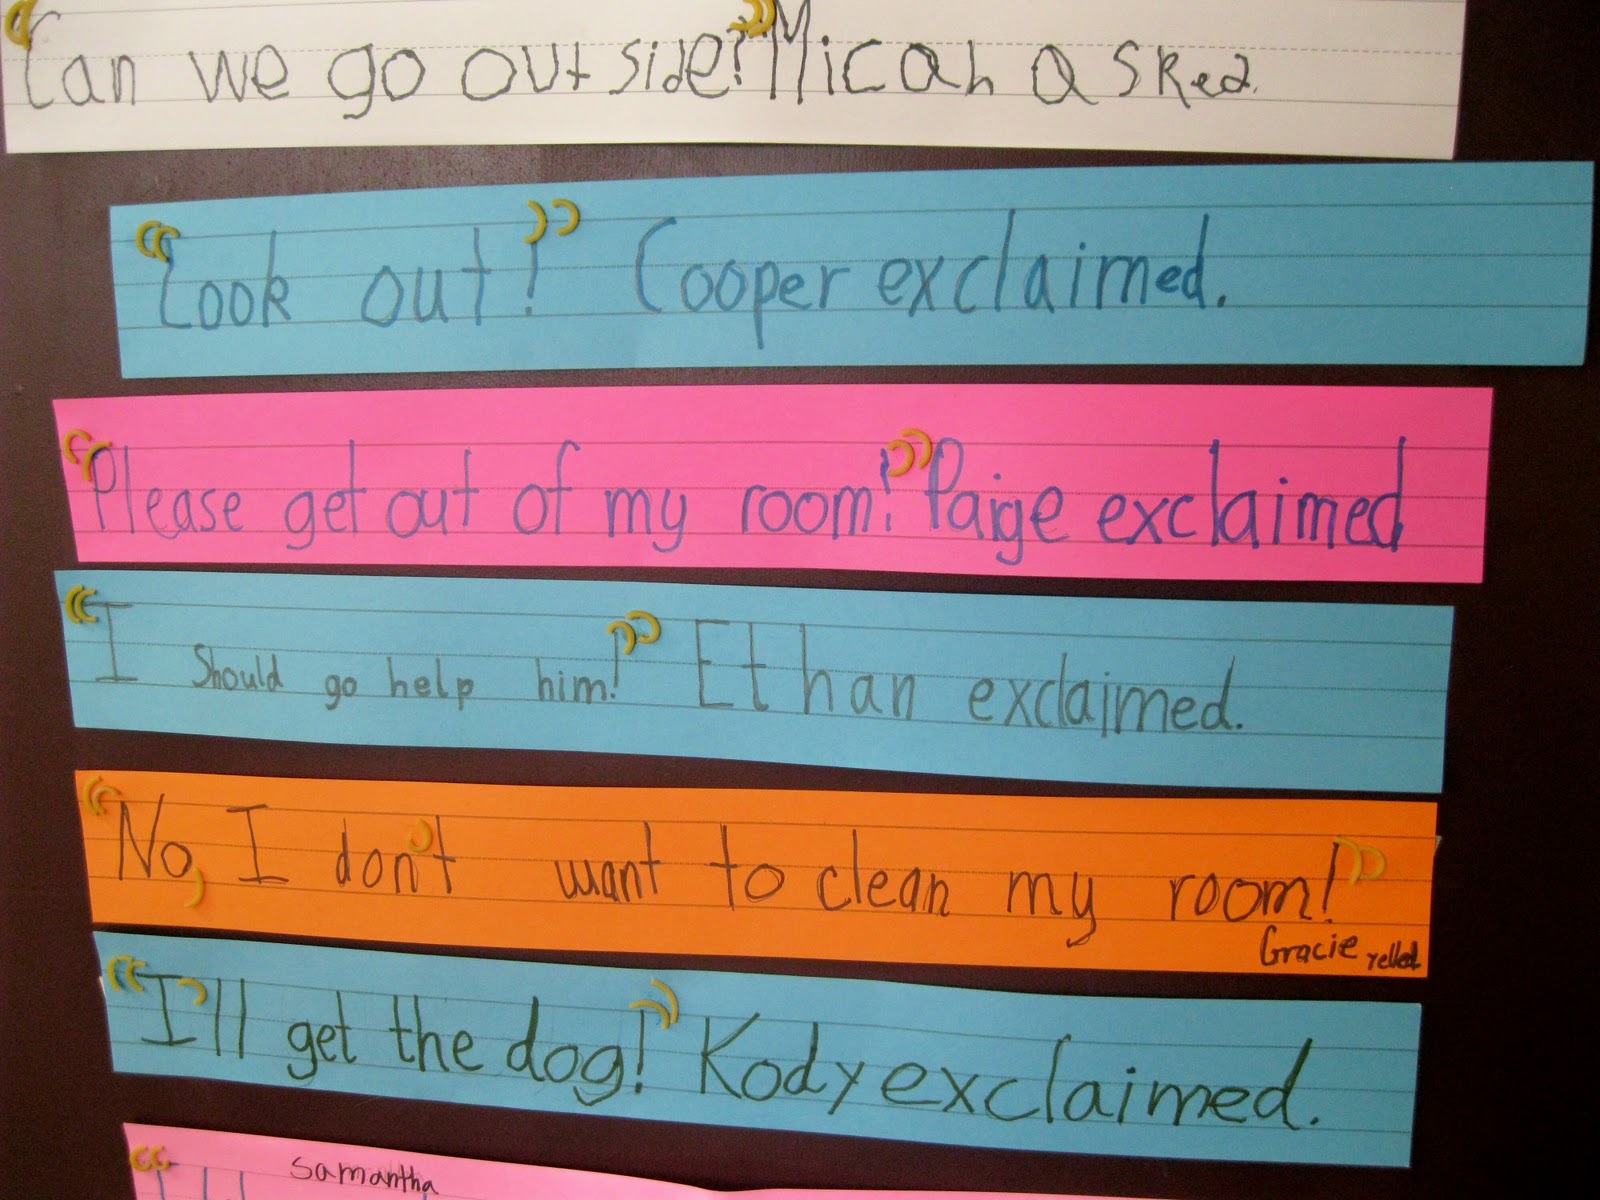 "Can we go outside?" Micah asked.
"Look out!" Cooper exclaimed.
"Please get out of my room!" Paige exclaimed
"I should go help him!" Ethan exclaimed.
"No, I don't want to clean my room!"
Gracie yelled
"I'll get the dog!" Kody exclaimed.
Samantha